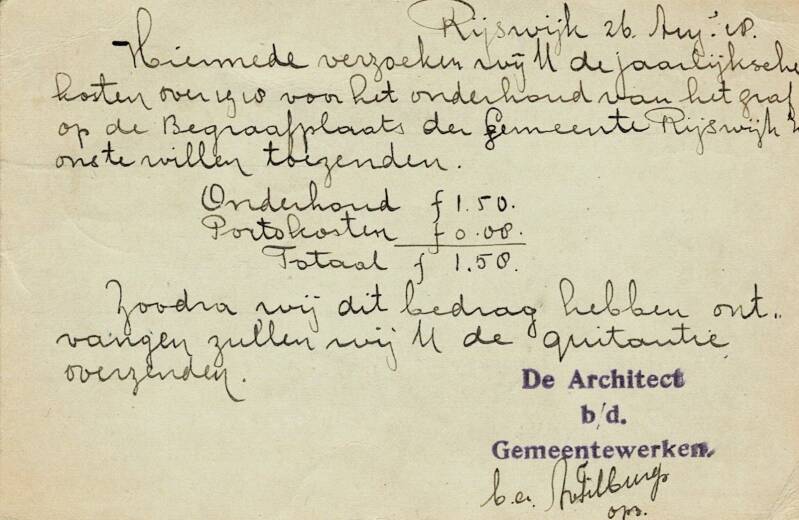 Rijswijk 26. Aug.' 18.
Hiermede verzoeken wij U de jaarlijksche
kosten over 1918 voor het onderhoud van het graf
op de Begraafplaats der Gemeente Rijswijk
ons te willen toezenden.
Onderhoud f 1.50.
Portokosten f 0.08.
Totaal f 1.58.
Zoodra wij dit bedrag hebben ont„
vangen zullen wij U de quitantie
overzenden.
De Architect
b/d.
Gemeentewerken.
b.a.
opz.